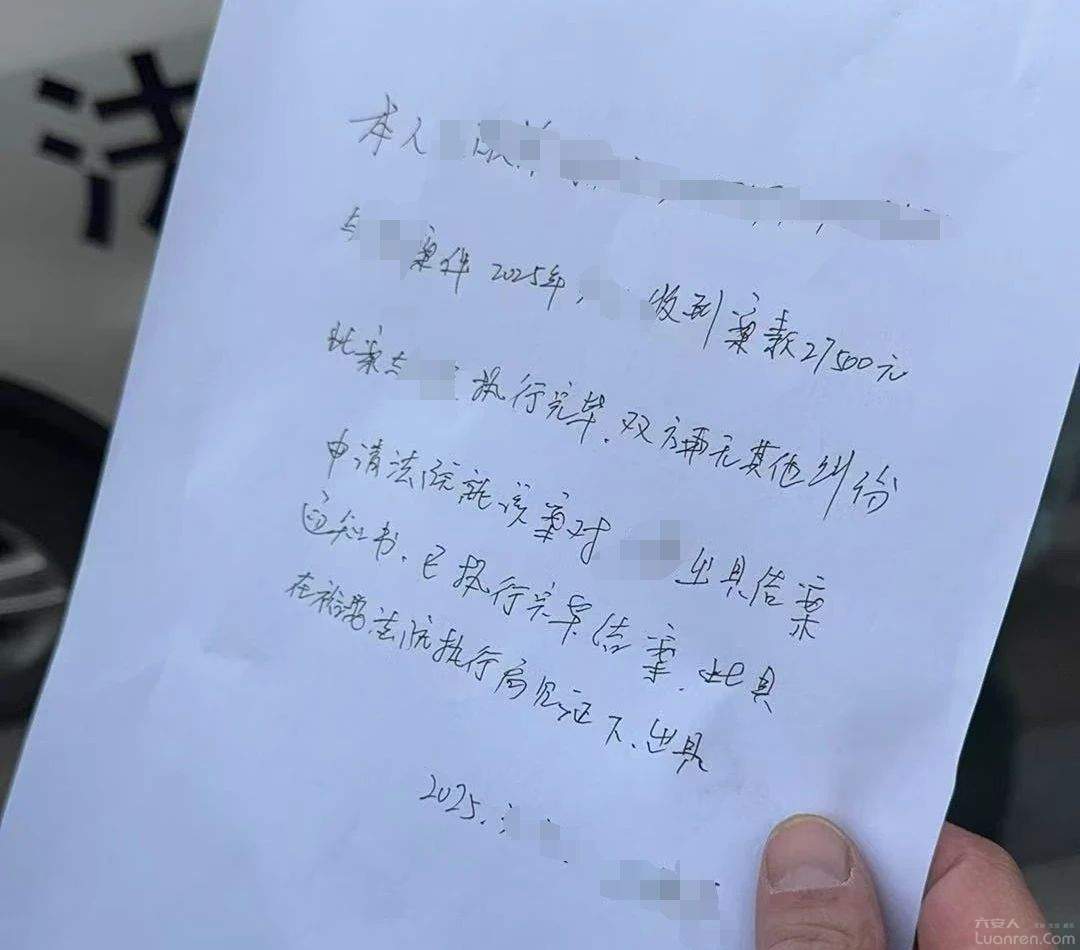 本人
与 案件2025年, 收到案款27500元
此案与 执行完毕.双方再无其他纠纷
申请法院就该案对 出具结案
通知书.已执行完毕结案.此具
在裕安法院执行局见证下.出具
2025.
六安人
Luanren.Com